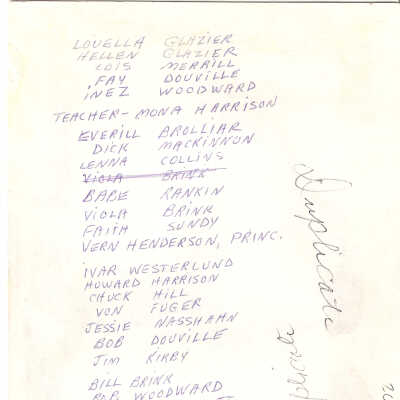 LOUELLA GLAZIER
HELLEN GLAZIER
LOIS MERRILL
FAY DOUVILLE
INEZ WOODWARD
TEACHER- MONA HARRISON
EVERILL BROLLIAR
DICK MACKINNON
LENNA COLLINS
VIOLA BRINK
BABE RANKIN
VIOLA BRINK
FAITH SUNDY
VERN HENDERSON, PRINC.
IVAR WESTERLUND
HOWARD HARRISON
CHUCK HILL
VON FUGER
JESSIE NASSHAHN
BOB DOUVILLE
JIM KIRBY
BILL BRINK
WOODWARD
Duplicate